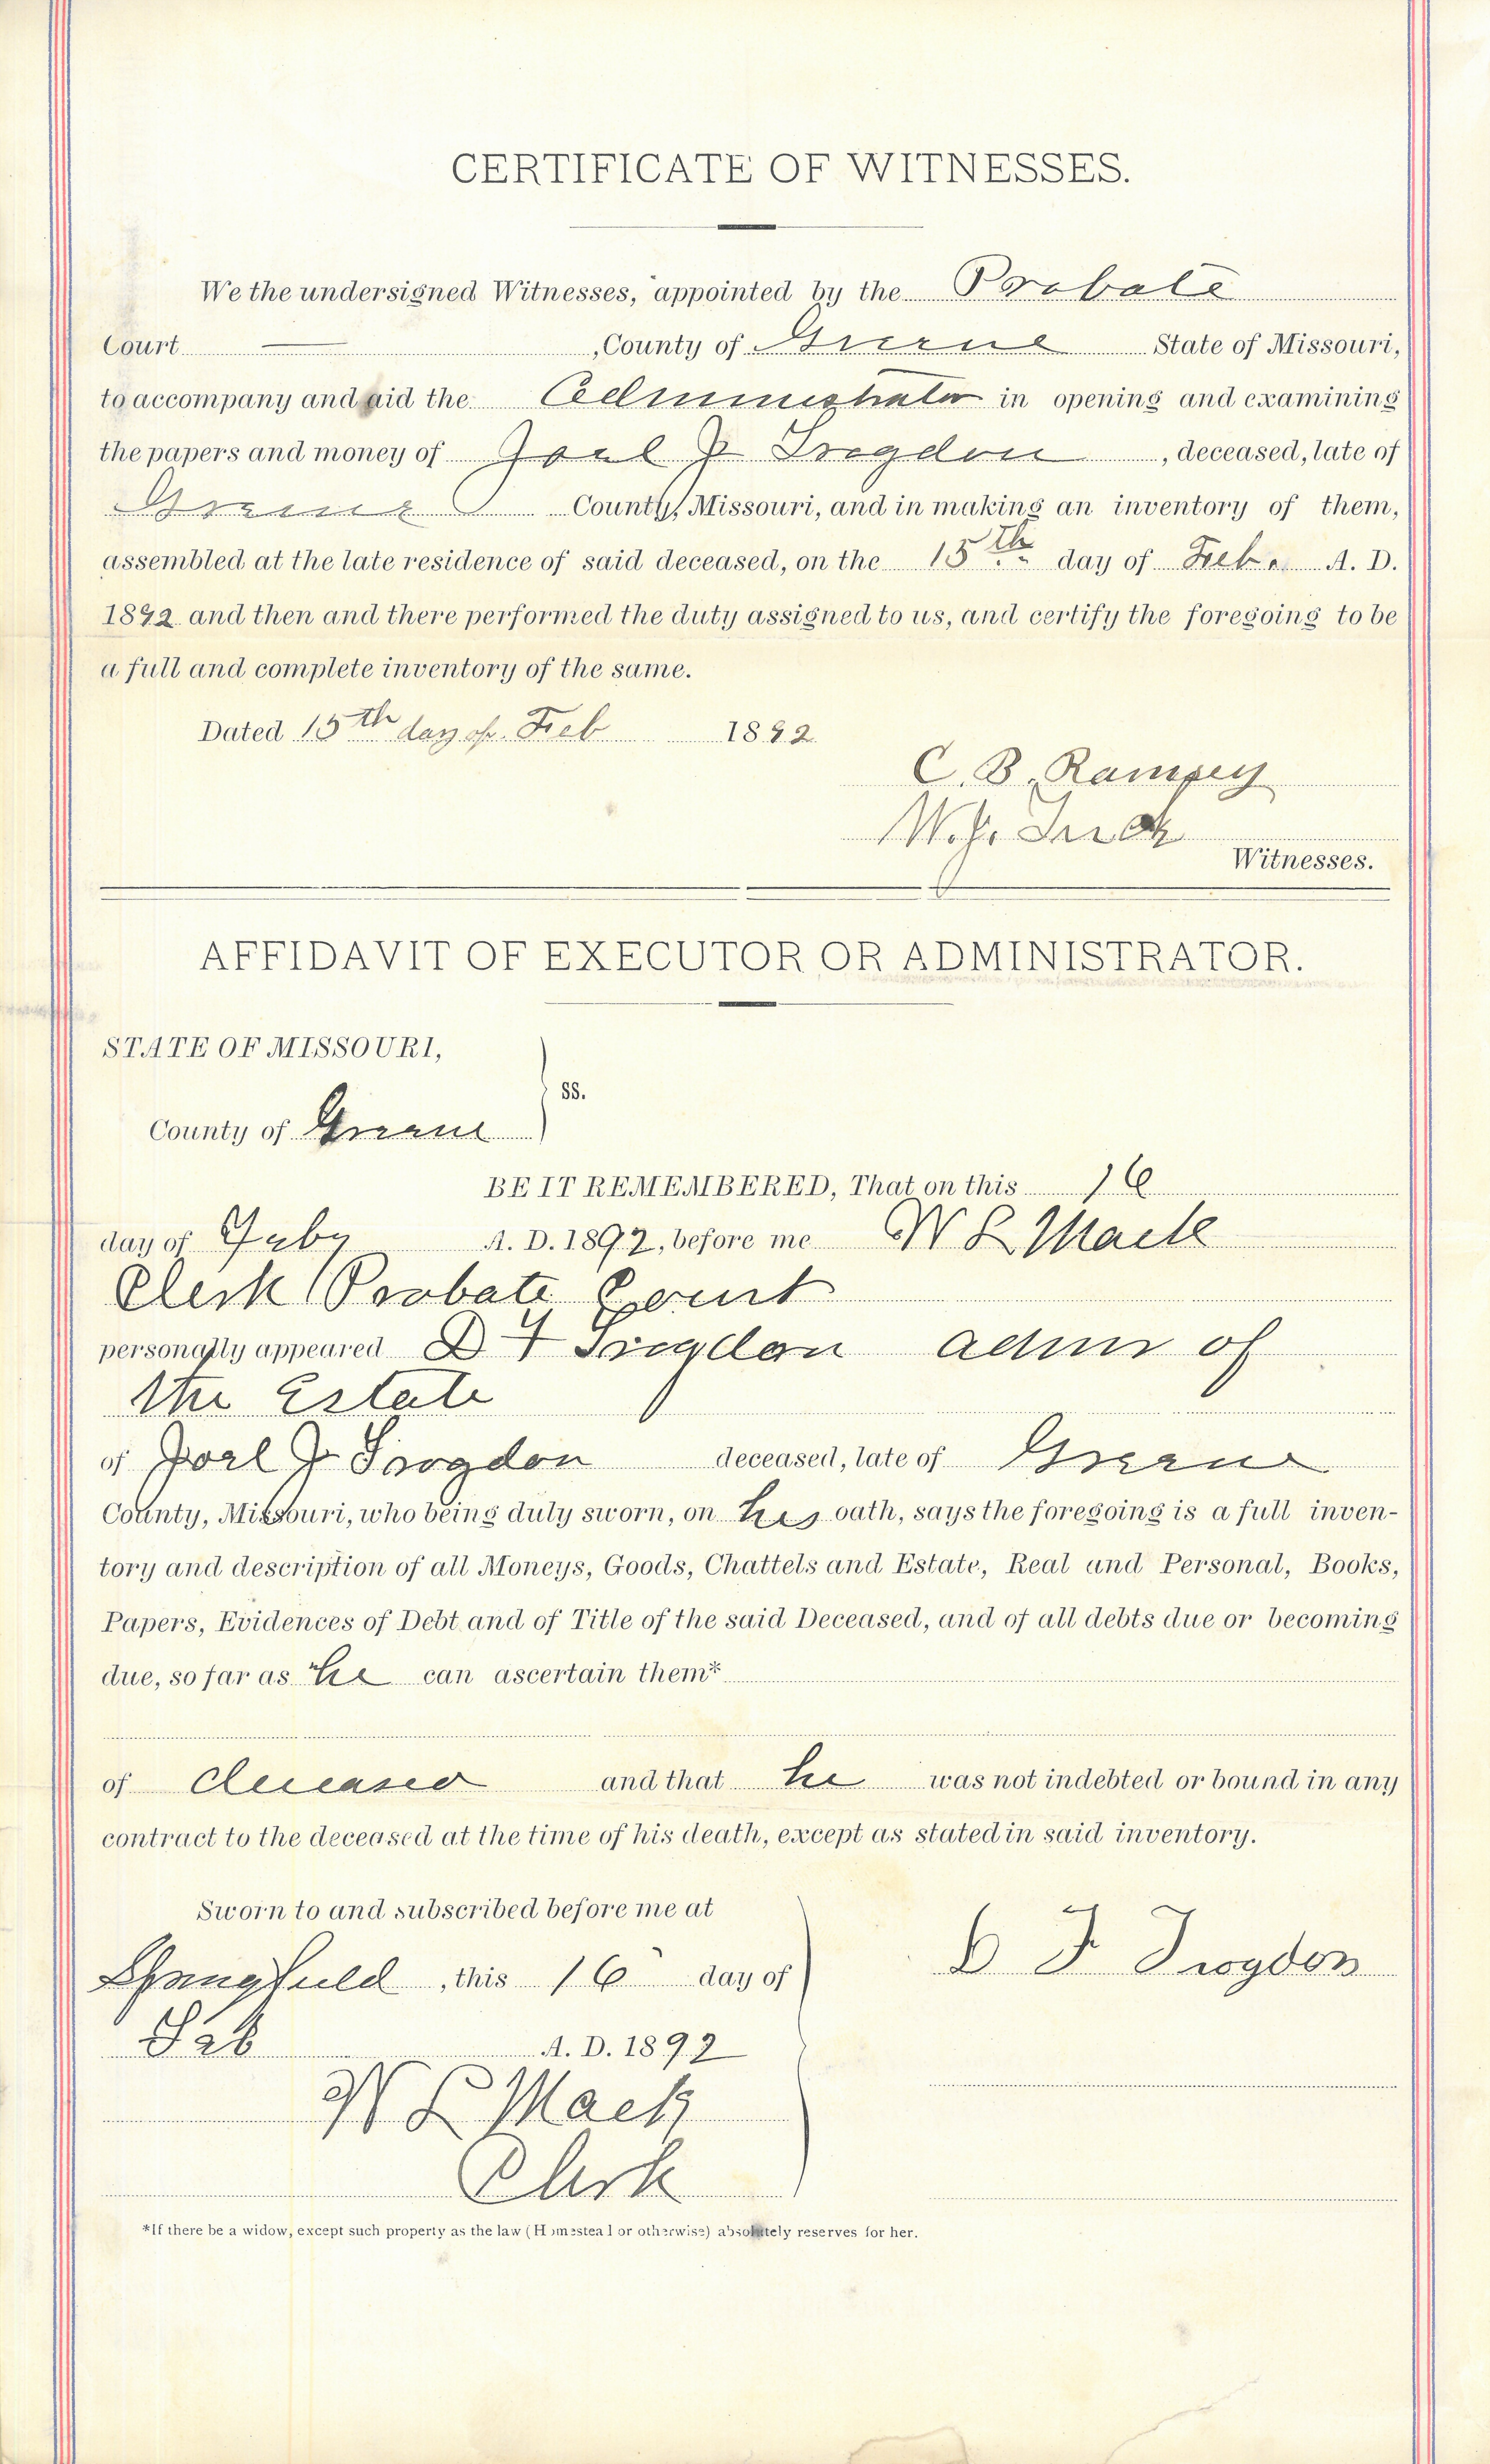 CERTIFICATE OF WITNESSES.
We the undersigned Witnesses, appointed by the Probate
Court ——— , County of Greene State of Missouri,
to accompany and aid the Administrator in opening and examining
the papers and money of Joel J Trogdon , deceased, late of
Greene County, Missouri, and in making an inventory of them,
assembled at the late residence of said deceased, on the 15th day of Feb. A. D.
1892 and then and there performed the duty assigned to us, and certify the foregoing to be
a full and complete inventory of the same.
Dated 15th day of Feb 1892
C. B. Rampey
W. J.
Witnesses.
AFFIDAVIT OF EXECUTOR OR ADMINISTRATOR.
STATE OF MISSOURI,
ss.
County of Greene
BE IT REMEMBERED, That on this 16
day of Feby A. D. 1892, before me W L Mack
Clerk Probate Court
personally appeared D F Trogdon admr of
the Estate
of Joel J Trogdon deceased, late of Greene
County, Missouri, who being duly sworn, on his oath, says the foregoing is a full inven-
tory and description of all Moneys, Goods, Chattels and Estate, Real and Personal, Books,
Papers, Evidences of Debt and of Title of the said Deceased, and of all debts due or becoming
due, so far as he can ascertain them*
of deceased and that he was not indebted or bound in any
contract to the deceased at the time of his death, except as stated in said inventory.
Sworn to and subscribed before me at
Springfield , this 16 day of
D F Trogdon
Feb A. D. 1892
W L Mack
Clerk
*If there be a widow, except such property as the law (Homestead or otherwise) absolutely reserves for her.